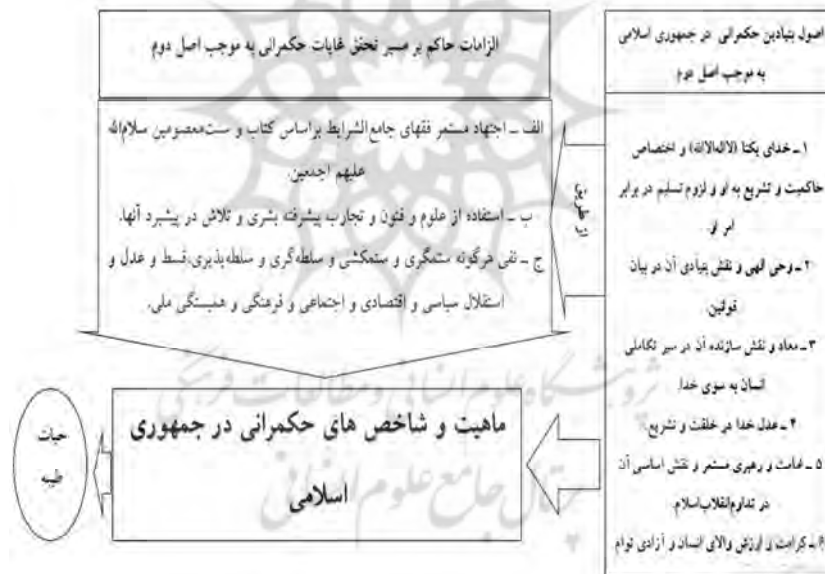 اصول بنیادین حکمرانی در جمهوری اسلامی
به موجب اصل دوم
۱ـ خدای یکتا (لااله‌الاالله) و اختصاص
حاکمیت و تشریع به او و لزوم تسلیم در برابر
امر او.
۲ـ وحی الهی و نقش بنیادی آن در بیان
قوانین.
۳ـ معاد و نقش سازنده آن در سیر تکاملی
انسان به سوی خدا.
۴ـ عدل خدا در خلقت و تشریع.
۵ـ امامت و رهبری مستمر و نقش اساسی آن
در تداوم انقلاب اسلام.
۶ـ کرامت و ارزش والای انسان و آزادی توام
الزامات حاکم بر مسیر تحقق غایات حکمرانی به موجب اصل دوم
الف ـ اجتهاد مستمر فقهای جامع‌الشرایط براساس کتاب و سنت معصومین سلام‌الله
علیهم اجمعین.
ب ـ استفاده از علوم و فنون و تجارب پیشرفته بشری و تلاش در پیشبرد آنها.
ج ـ نفی هرگونه ستمگری و ستمکشی و سلطه‌گری و سلطه‌پذیری، قسط و عدل و
استقلال سیاسی و اقتصادی و اجتماعی و فرهنگی و همبستگی ملی.
از طریق
ماهیت و شاخص های حکمرانی در جمهوری
اسلامی
حیات
طیبه
پژوهشگاه علوم انسانی و مطالعات فرهنگی
پرتال جامع علوم انسانی